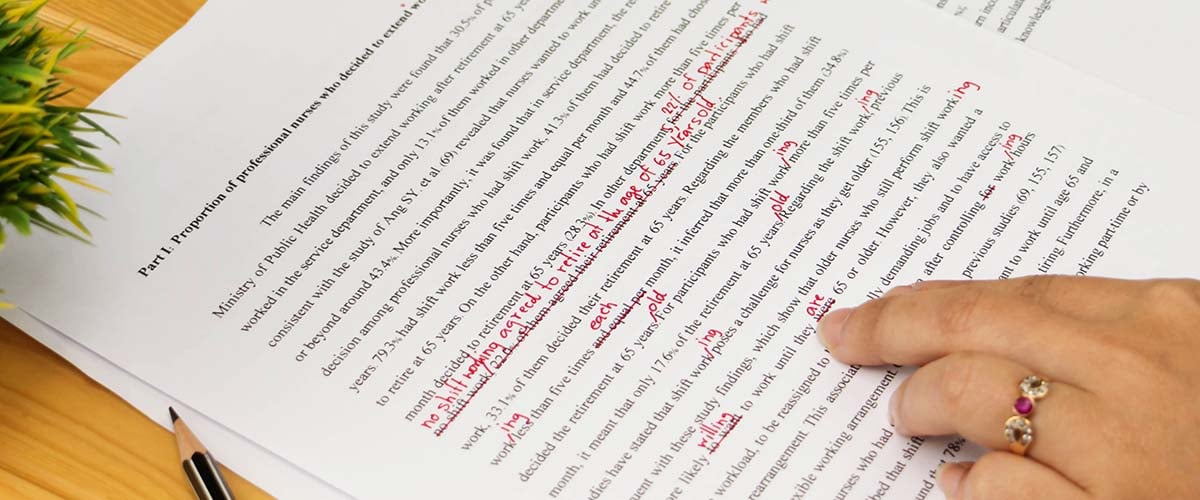 Part 1. Proportion of professional nurses who decided to extend wo
The main findings of this study were found that 30.5% of p
Ministry of Public Health decided to extend working after retirement at 65 year
worked in the service department, and only 13.1% of them worked in other departmen
consistent with the study of Ang SY, et al (69) revealed that nurses wanted to work un
or beyond around 43.4%. More importantly, it was found that in service department, the re
decision among professional nurses who had shift work, 41.3% of them had decided to retire
years. 79.3% had shift work less than five times and equal per month and 44.7% of them had chos
to retire at 65 years. On the other hand, participants who had shift work more than five times per
22% of participants
month decided to retirement at 65 years (28.3%). In other department, for the participants who had
no shift working agreed to retire at the age of 65 years old
no shift work, 22.0% of them agreed their retirement at 65 years. For the participants who had shift
work, 33.1% of them decided their retirement at 65 years. Regarding the members who had shift
ing each
work less than five times and equal per month, it inferred that more than one-third of them (34.8%)
old ing
decided the retirement at 65 years. For participants who had shift work more than five times per
old ing
month, it meant that only 17.6% of the retirement at 65 years. Regarding the shift work, previous
ing
udies have stated that shift work poses a challenge for nurses as they get older (155, 156). This is
uent with these study findings, which show that older nurses who still perform shift working
willing are
re likely to want to work until they were 65 or older. However, they also wanted a
workload, to be reassigned to lly demanding jobs and to have access to
ing
rearrangement. This associa after controlling for work hours
xible working arrangement previous studies (69, 155, 157)
nurses who had nt to work until age 65 and
bed that shift iring Furthermore, in a
und the 78% orking part-time or by